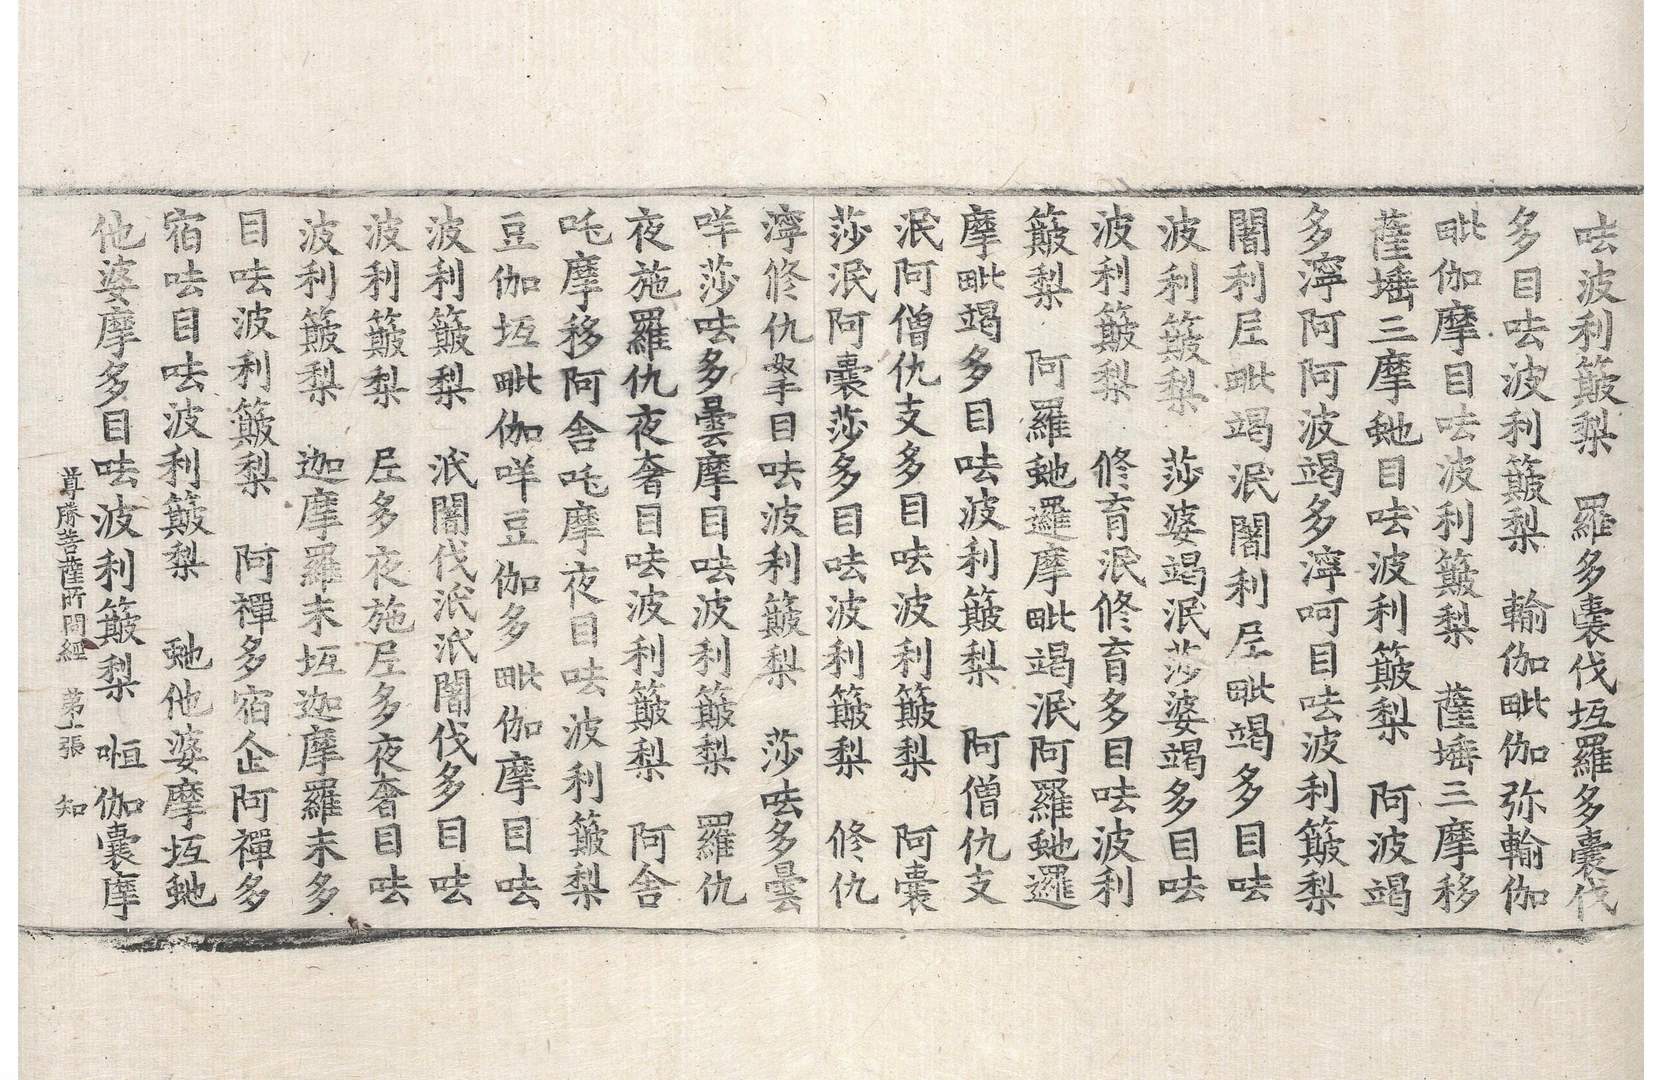 呿波利簸梨　羅多囊伐坘羅多囊伐
多目呿波利簸梨　輸伽毗伽弥輸伽
毗伽摩目呿波利簸梨　薩墦三摩移
薩墦三摩虵目呿波利簸梨　阿波竭
多濘阿阿波竭多濘呵目呿波利簸梨
闍利𡰱毗竭泯闍利𡰱毗竭多目呿
波利簸梨　莎婆竭泯莎婆竭多目呿
波利簸梨　修育泯修育多目呿波利
簸梨　阿羅虵邏摩毗竭泯阿羅虵邏
摩毗竭多目呿波利簸梨　阿僧仇支
泯阿僧仇支多目呿波利簸梨　阿囊
莎泯阿囊莎多目呿波利簸梨　修仇
濘修仇拏目呿波利簸梨　莎呿多曇
咩莎呿多曇摩目呿波利簸梨　羅仇
夜施羅仇夜奢目呿波利簸梨　阿舍
吒摩移阿舍吒摩夜目呿波利簸梨
豆伽坘毗伽咩豆伽多毗伽摩目呿
波利簸梨　泜闍伐泜泜闍伐多目呿
波利簸梨　𡰱多夜施𡰱多夜奢目呿
波利簸梨　迦摩羅末坘迦摩羅末多
目呿波利簸梨　阿禪多宿企阿禪多
宿呿目呿波利簸梨　虵他婆摩坘虵
他婆摩多目呿波利簸梨　㖚伽囊摩
尊勝菩薩所問經　第　張　知